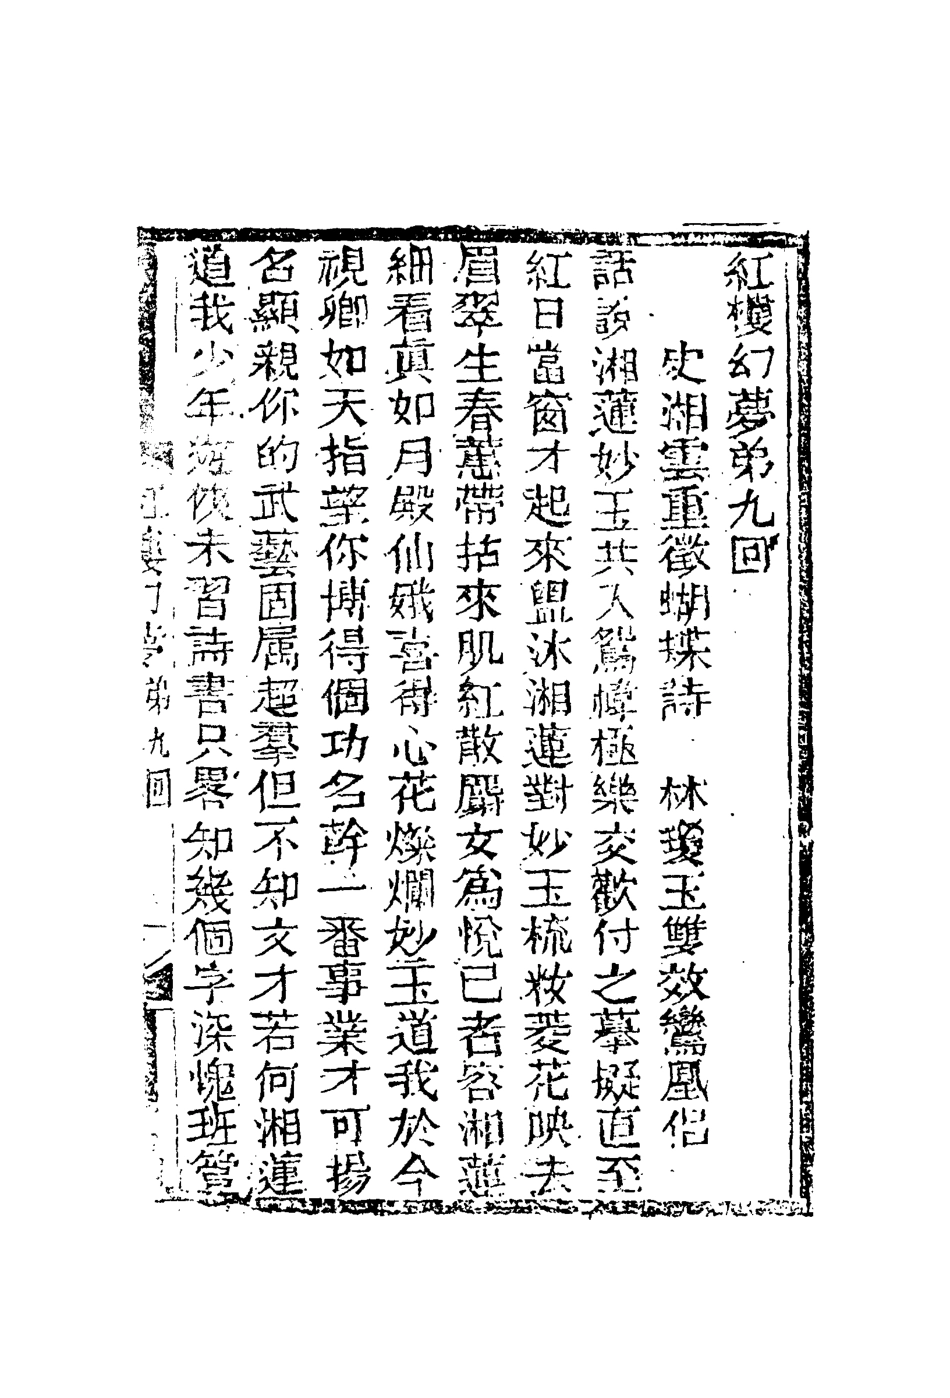 紅樓幻夢弟九回
史湘雲重徵蝴蝶詩　林瓊玉雙效鸞凰侶
話說湘蓮妙玉共入鴛幃極樂交歡付之摹擬直至
紅日當窗才起來盥沐湘蓮對妙玉梳妝菱花映去
眉翠生春蕙帶拈來肌紅散麝女為悅已者容湘蓮
細看真如月殿仙娥喜得心花燦爛妙玉道我於今
視卿如天指望你博得個功名幹一番事業才可揚
名顯親你的武藝固屬超羣但不知文才若何湘蓮
道我少年遊俠未習詩書只畧知幾個字深愧班管
紅樓幻夢　弟九回　一